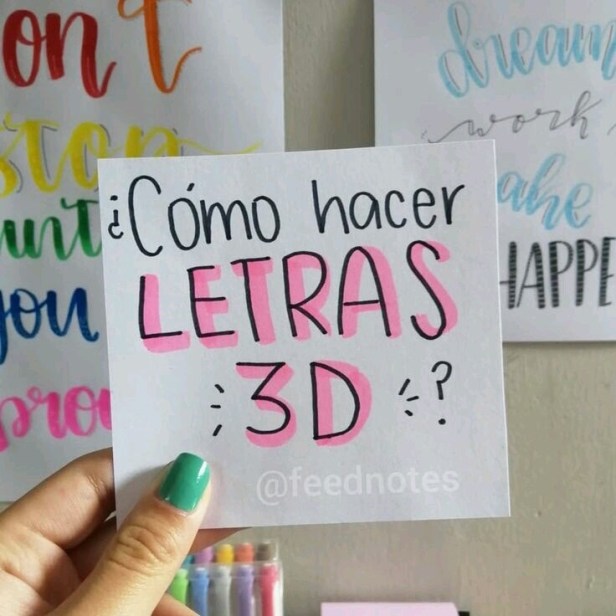 ¿Cómo hacer
LETRAS
3D ?
@feednotes
on't
stop
unt
you
prou
dream
work
ake
HAPPE